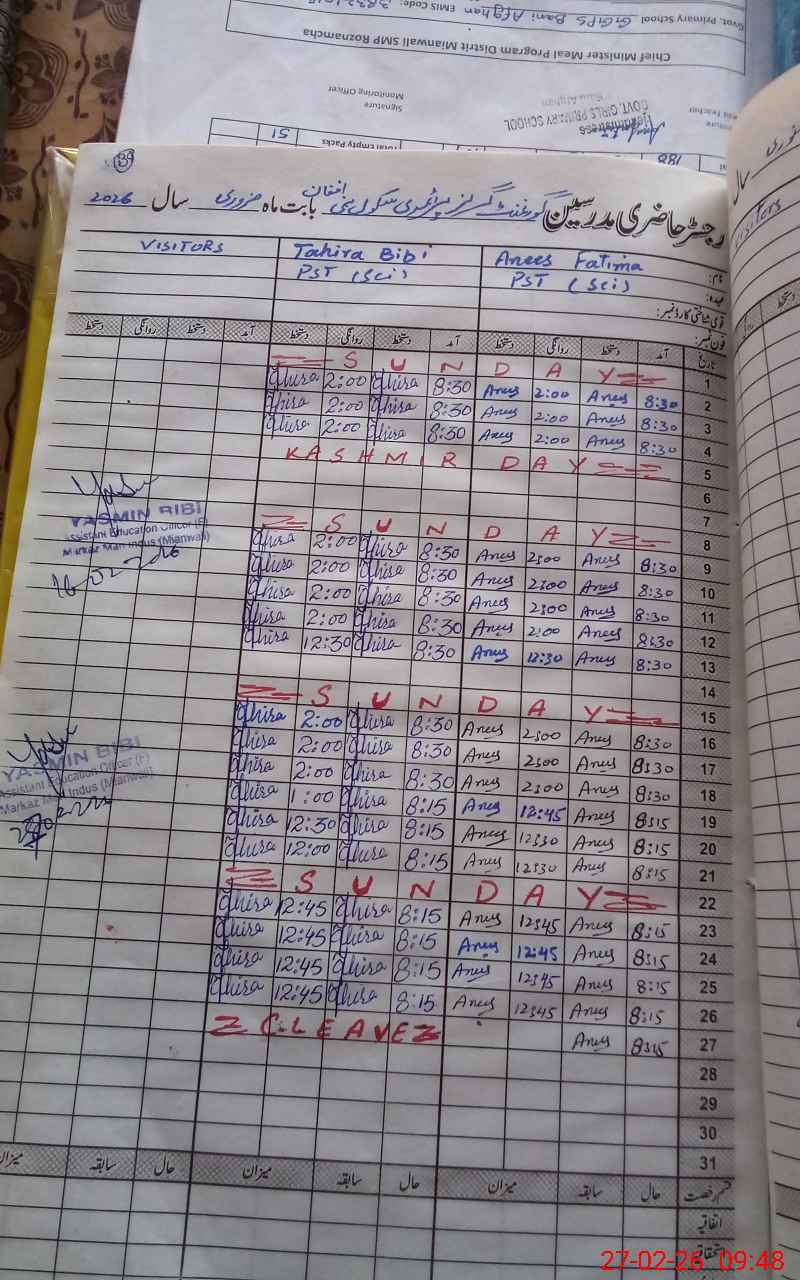 Govt. Primary School GGPS Bani Afghan EMIS Code:
Chief Minister Meal Program Distrit Mianwali SMP Roznamcha
Signature
Monitoring Officer
Headmistress
GOVT. GIRLS PRIMARY SCHOOL
Bani Afghan
Total Empty Packs 51
188
39
رجسٹر حاضری مدرسین گورنمنٹ گرلز پرائمری سکول بنی افغان بابت ماہ فروری سال 2026
نام: Anees Fatima Tahira Bibi VISITORS
عہدہ: PST (Sci) PST (Sci)
قومی شناختی کارڈ نمبر:
فون نمبر:
تاریخ آمد دستخط روانگی دستخط آمد دستخط روانگی دستخط آمد دستخط روانگی دستخط
1 S U N D A Y
2 8:30 Anees 2:00 Anees 8:30 2:00
3 8:30 Anees 2:00 Anees 8:30 2:00
4 8:30 Anees 2:00 Anees 8:30 2:00
5 KASHMIR DAY
6
7
8 S U N D A Y
9 8:30 Anees 2:00 Anees 8:30 2:00
10 8:30 Anees 2:00 Anees 8:30 2:00
11 8:30 Anees 2:00 Anees 8:30 2:00
12 8:30 Anees 2:00 Anees 8:30 2:00
13 8:30 Anees 12:30 Anees 8:30 12:30
14
15 S U N D A Y
16 8:30 Anees 2:00 Anees 8:30 2:00
17 8:30 Anees 2:00 Anees 8:30 2:00
18 8:30 Anees 2:00 Anees 8:30 2:00
19 8:15 Anees 12:45 Anees 8:15 1:00
20 8:15 Anees 12:30 Anees 8:15 12:30
21 8:15 Anees 12:30 Anees 8:15 12:00
22 S U N D A Y
23 8:15 Anees 12:45 Anees 8:15 12:45
24 8:15 Anees 12:45 Anees 8:15 12:45
25 8:15 Anees 12:45 Anees 8:15 12:45
26 8:15 Anees 12:45 Anees 8:15 12:45
27 8:15 Anees C.LEAVE
28
29
30
31
YASMIN BIBI
Assistant Education Officer (F)
Markaz Mari Indus (Mianwali)
16-02-2026
YASMIN BIBI
Assistant Education Officer (F)
Markaz Mari Indus (Mianwali)
قسم رخصت حال سابقہ میزان حال سابقہ میزان حال سابقہ میزان
اتفاقیہ
فروری
سال
Visitors
27-02-26 09:48